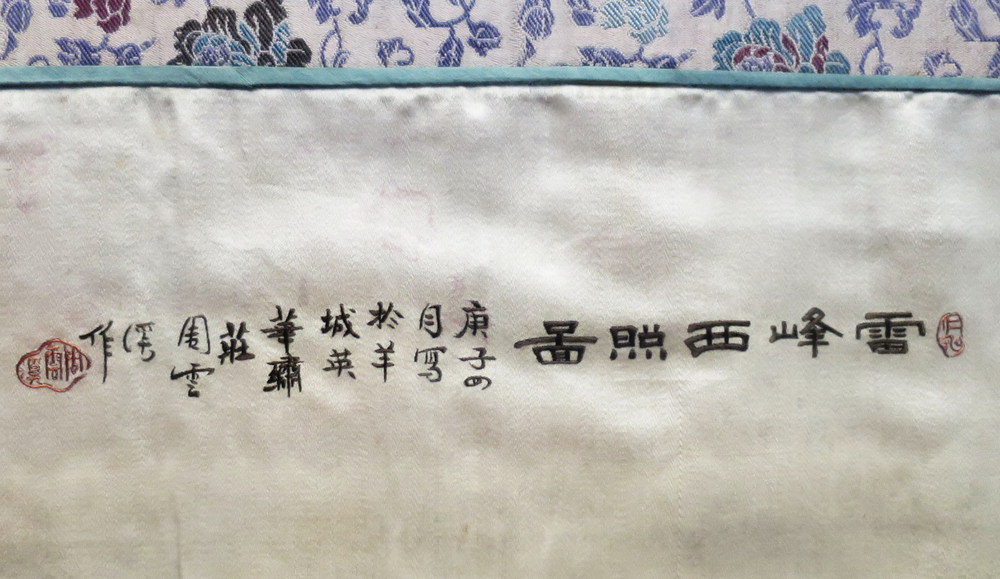 雷峰西照圖
庚子四
月寫
於羊
城英
華繡
莊
周雲
溪
作